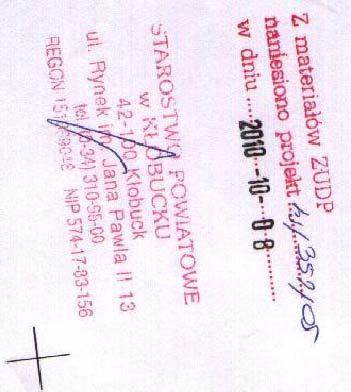 Z materiałów ZUDP
naniesiono projekt
w dniu ..... 2010 -10- 08 ...........
STAROSTWO POWIATOWE
w KŁOBUCKU
42-100 Kłobuck
ul. Rynek im. Jana Pawła II 13
tel. (0-34) 310-95-00
REGON NIP 574-17-83-156